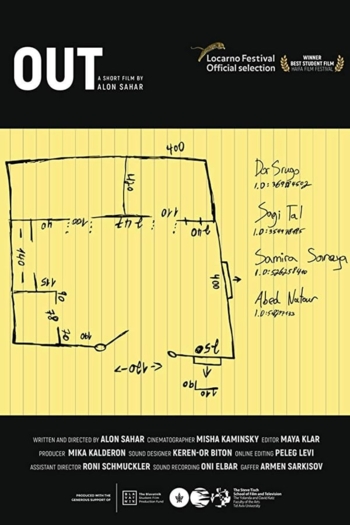 OUT
A SHORT FILM BY
ALON SAHAR
Locarno Festival
Official selection
WINNER
BEST STUDENT FILM
HAIFA FILM FESTIVAL
400
420
40
100
247
110
240
140
115
90
78
70
190
400
250
<-120->
190
110
Dor Srugo
I.D:
Sagi Tal
I.D:
Samira Saraya
I.D:
Abed Natour
I.D:
WRITTEN AND DIRECTED BY ALON SAHAR CINEMATOGRAPHER MISHA KAMINSKY EDITOR MAYA KLAR
PRODUCER MIKA KALDERON SOUND DESIGNER KEREN-OR BITON ONLINE EDITING PELEG LEVI
ASSISTANT DIRECTOR RONI SCHMUCKLER SOUND RECORDING ONI ELBAR GAFFER ARMEN SARKISOV
PRODUCED WITH THE
GENEROUS SUPPORT OF
The Steve Tisch
School of Film and Television
Tel Aviv University